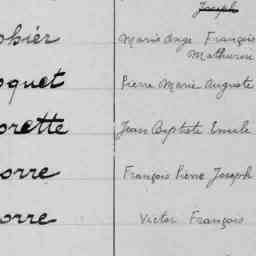 Joseph
obier Marie Ange François
Mathurin
oquet Pierre Marie Auguste
orette Jean Baptiste Emile
orre François Pierre Joseph
orre Victor François